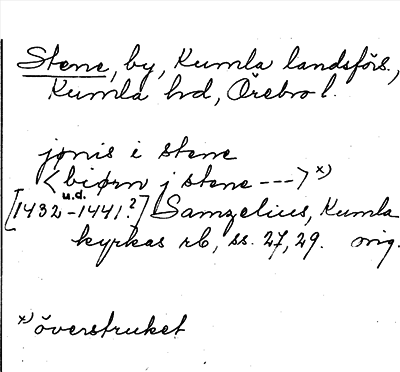 Stene, by, Kumla landsförs.,
Kumla hd, Örebro l.
jønis i stene
<biørn j stene --->x)
u.d.
[1432-1441?] Samzelius, Kumla
kyrkas rb, ss. 27, 29. orig.
x) överstruket